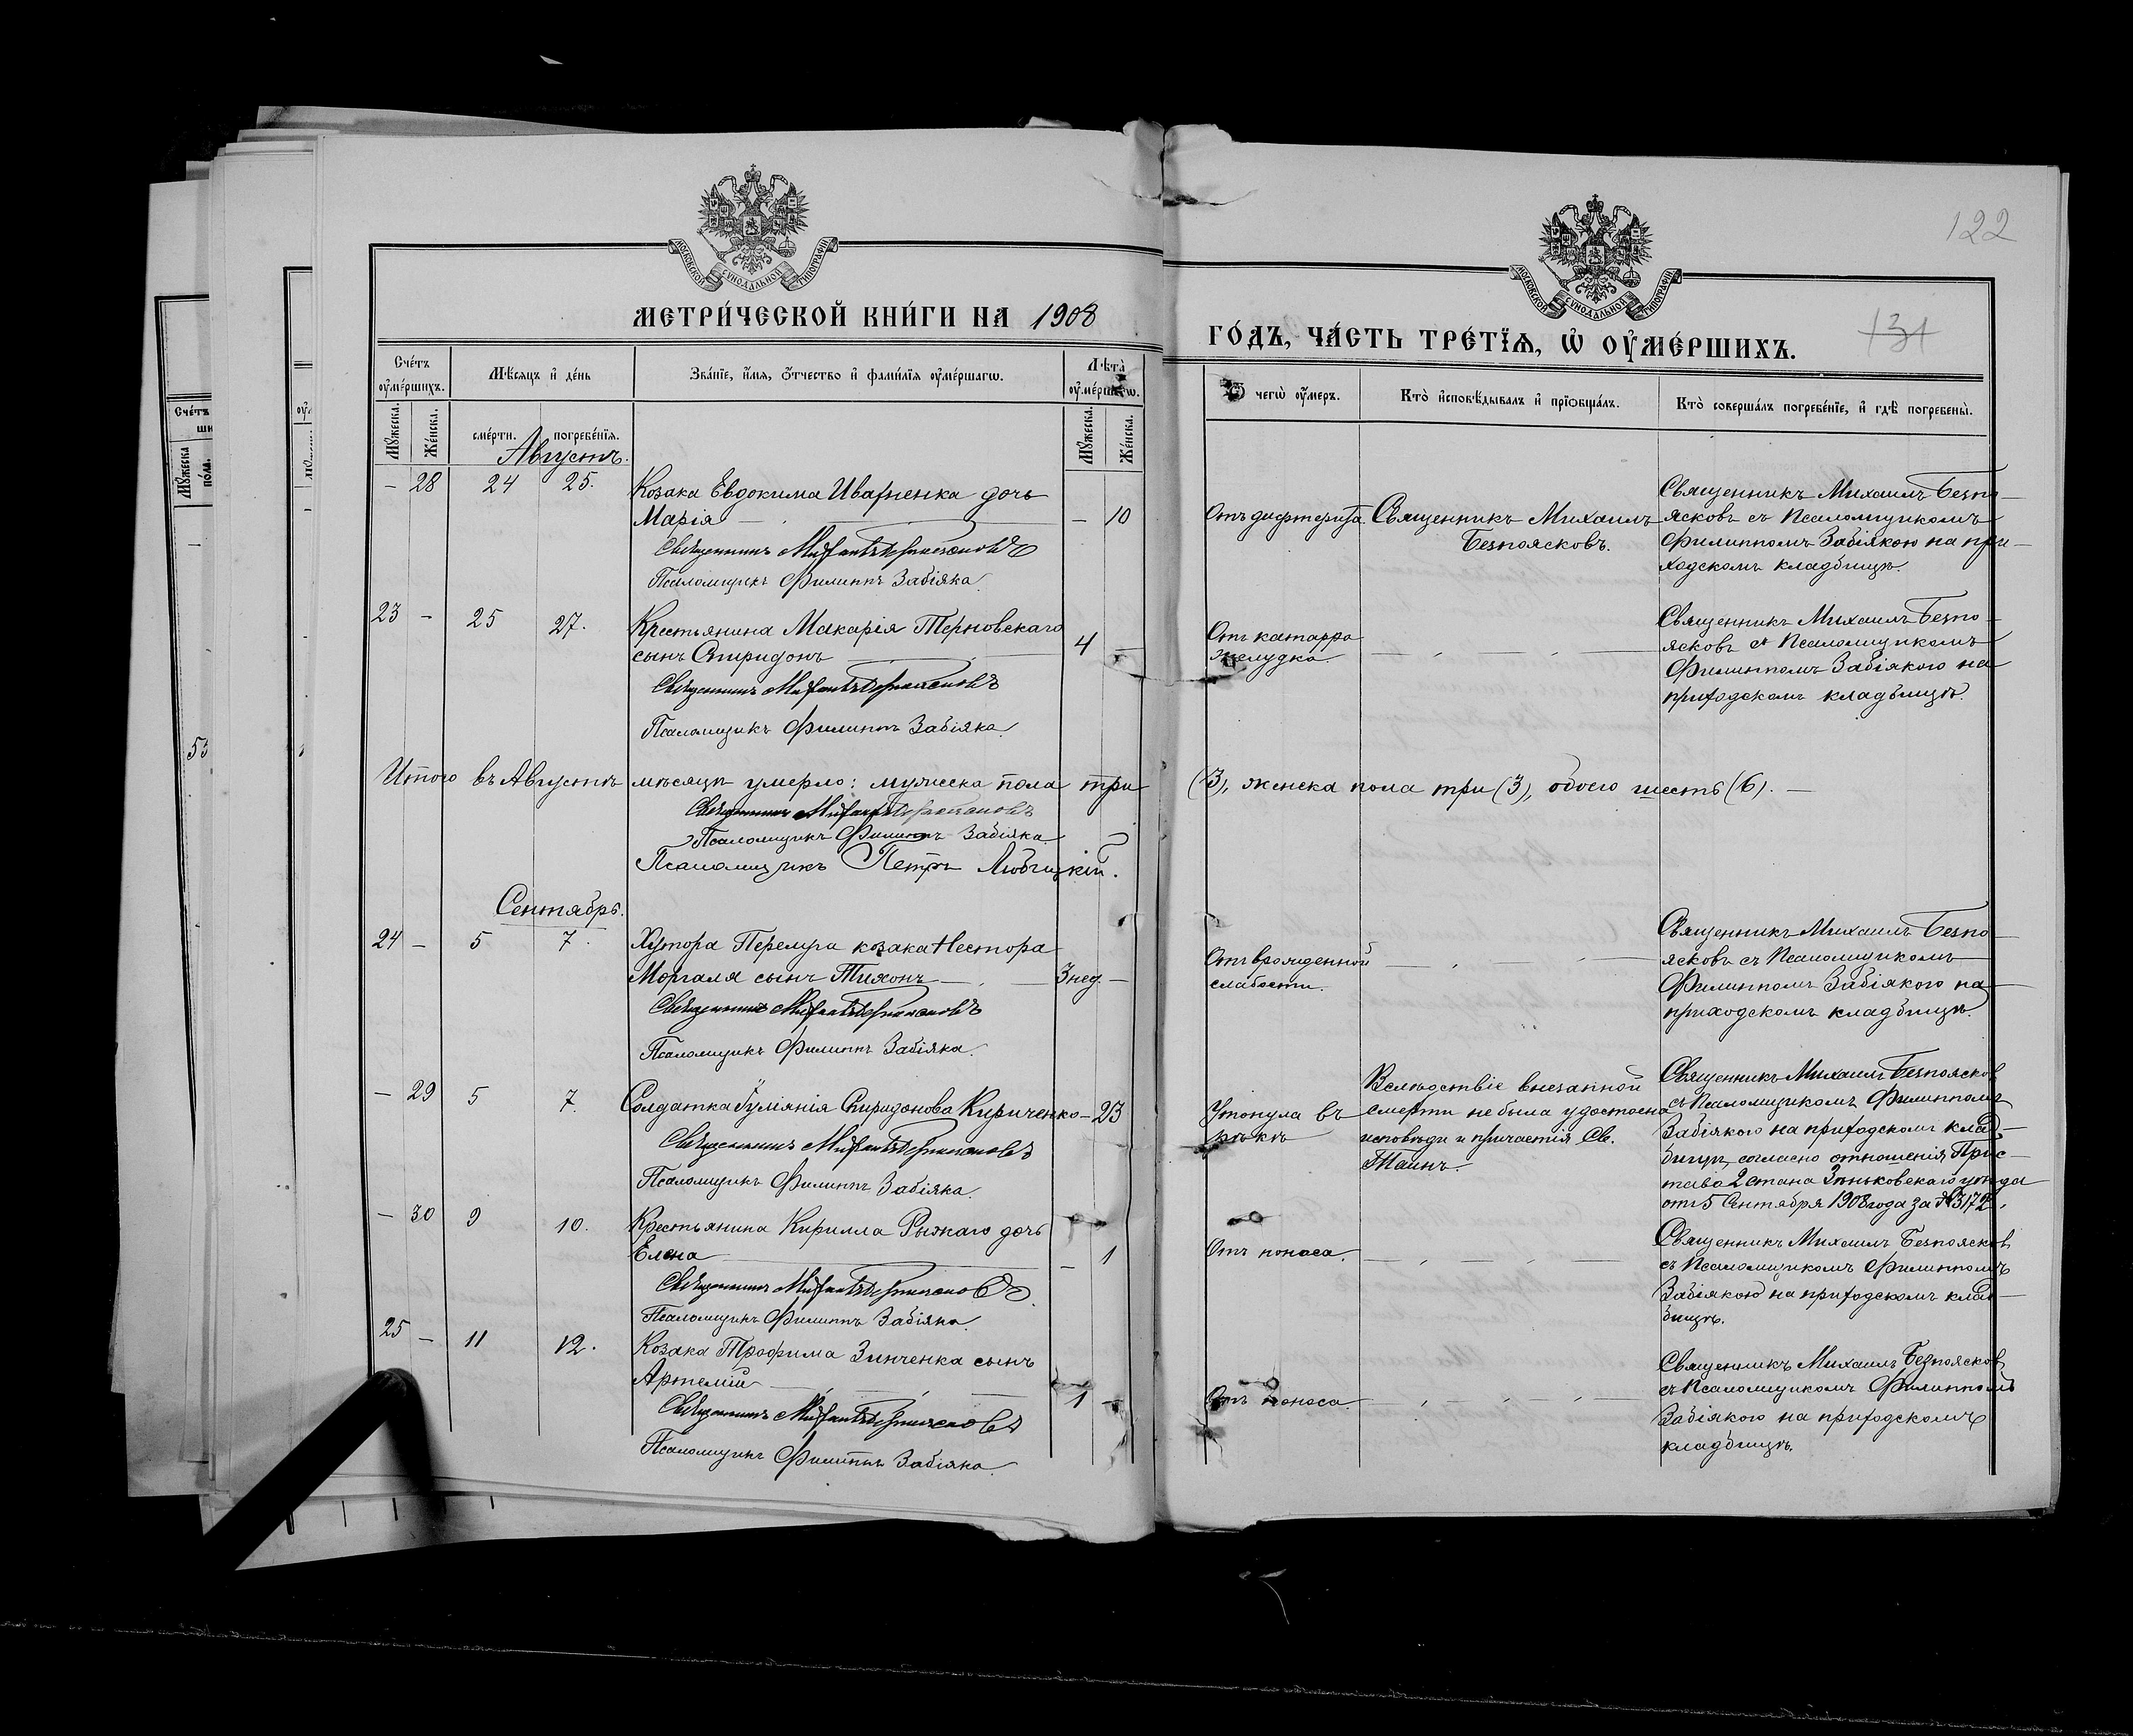 122
131
МОСКОВСКОЙ СѴНОДАЛЬНОЙ ТИПОГРАФІИ
МЕТРИ́ЧЕСКОЙ КНИ́ГИ НА 1908
МОСКОВСКОЙ СѴНОДАЛЬНОЙ ТИПОГРАФІИ
ГО́ДЪ, ЧА́СТЬ ТРЕ́ТЇѦ, Ѡ҆ ОУ҆МЕ́РШИХЪ.
Сче́тъ оу҆ме́ршихъ.
Мꙋ́жеска.
Же́нска.
Мѣ́сяцъ и҆ де́нь
сме́рти.
погребе́нїя.
Зва́нїе, и҆́мя, ѻ҆́тчество и҆ фами́лїя оу҆ме́ршагѡ.
Лѣ̀та̀ оу҆ме́ршагѡ.
Мꙋ́жеска.
Же́нска.
Ѿ чегѡ̀ оу҆́меръ.
Кто̀ и҆сповѣ́дывалъ и҆ прїѡбща́лъ.
Кто̀ соверша́лъ погребе́нїе, и҆ гдѣ̀ погребены̀.
Августъ.
– 28 24 25.
Козака Евдокима Иваненка дочь
Марія – 10
Священникъ Михаилъ Безпоясковъ
Псаломщикъ Филиппъ Забіяка
Отъ дифтерита.
Священникъ Михаилъ
Безпоясковъ.
Священникъ Михаилъ Безпо-
ясковъ съ Псаломщикомъ
Филиппомъ Забіякою на при-
ходскомъ кладбищѣ.
23 – 25 27.
Крестьянина Макарія Терновскаго
сынъ Спиридонъ 4 –
Священникъ Михаилъ Безпоясковъ
Псаломщикъ Филиппъ Забіяка.
Отъ катарра
желудка.
Священникъ Михаилъ Безпо-
ясковъ съ Псаломщикомъ
Филиппомъ Забіякою на
приходскомъ кладбищѣ.
Итого въ Августѣ мѣсяцѣ умерло: мужеска пола три (3), женска пола три (3), обоего шесть (6). –
Священникъ Михаилъ Безпоясковъ
Псаломщикъ Филиппъ Забіяка
Псаломщикъ Петръ Любицкій.
Сентябрь.
24 – 5 7.
Хутора Перелуги козака Нестора
Моргаля сынъ Тихонъ 3 нед. –
Священникъ Михаилъ Безпоясковъ
Псаломщикъ Филиппъ Забіяка.
Отъ врожденной
слабости.
Священникъ Михаилъ Безпо-
ясковъ съ Псаломщикомъ
Филиппомъ Забіякою на
приходскомъ кладбищѣ.
– 29 5 7.
Солдатка Іуліянія Спиридонова Кириченко – 23
Священникъ Михаилъ Безпоясковъ
Псаломщикъ Филиппъ Забіяка.
Утонула въ
рѣкѣ
Вслѣдствіе внезапной
смерти не была удостоена
исповѣди и причастія Св.
Таинъ.
Священникъ Михаилъ Безпоясковъ
съ Псаломщикомъ Филиппомъ
Забіякою на приходскомъ клад-
бищѣ, согласно отношенія Прис-
тава 2 стана Зѣньковскаго уѣзда
отъ 5 Сентября 1908 года за № 3172.
– 30 9 10.
Крестьянина Кирилла Рыжаго дочь
Елена – 1
Священникъ Михаилъ Безпоясковъ
Псаломщикъ Филиппъ Забіяка.
Отъ поноса.
Священникъ Михаилъ Безпоясковъ
съ Псаломщикомъ Филиппомъ
Забіякою на приходскомъ клад-
бищѣ.
25 – 11 12.
Козака Трофима Зинченка сынъ
Артемій 1 –
Священникъ Михаилъ Безпоясковъ
Псаломщикъ Филиппъ Забіяка.
Отъ поноса.
Священникъ Михаилъ Безпоясковъ
съ Псаломщикомъ Филиппомъ
Забіякою на приходскомъ
кладбищѣ.